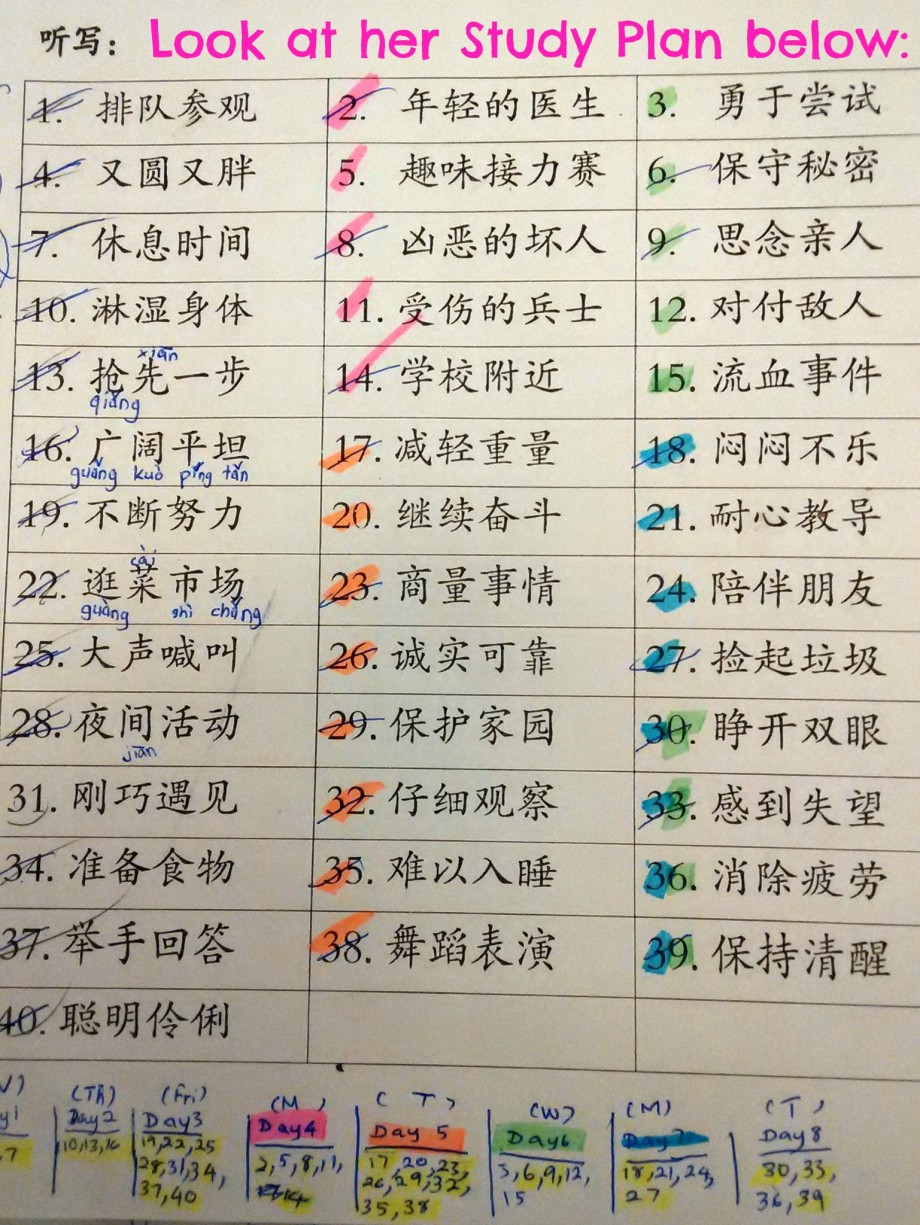 听写: Look at her Study Plan below:
1. 排队参观 2. 年轻的医生 3. 勇于尝试
4. 又圆又胖 5. 趣味接力赛 6. 保守秘密
7. 休息时间 8. 凶恶的坏人 9. 思念亲人
10. 淋湿身体 11. 受伤的兵士 12. 对付敌人
xiān
13. 抢先一步 14. 学校附近 15. 流血事件
qiǎng
16. 广阔平坦 17. 减轻重量 18. 闷闷不乐
guǎng kuò píng tǎn
19. 不断努力 20. 继续奋斗 21. 耐心教导
cài
22. 逛菜市场 23. 商量事情 24. 陪伴朋友
guàng shì chǎng
25. 大声喊叫 26. 诚实可靠 27. 捡起垃圾
28. 夜间活动 29. 保护家园 30. 睁开双眼
jiān
31. 刚巧遇见 32. 仔细观察 33. 感到失望
34. 准备食物 35. 难以入睡 36. 消除疲劳
37. 举手回答 38. 舞蹈表演 39. 保持清醒
40. 聪明伶俐
(TH) (Fri) (M) (T) (W) (M) (T)
Day2 Day3 Day4 Day 5 Day6 Day7 Day8
7 10,13,16 19,22,25 2,5,8,11, 17, 20, 23, 3,6,9,12, 18,21,24, 30,33,
28,31,34, 14 26,29,32, 15 27 36,39
37,40 35,38